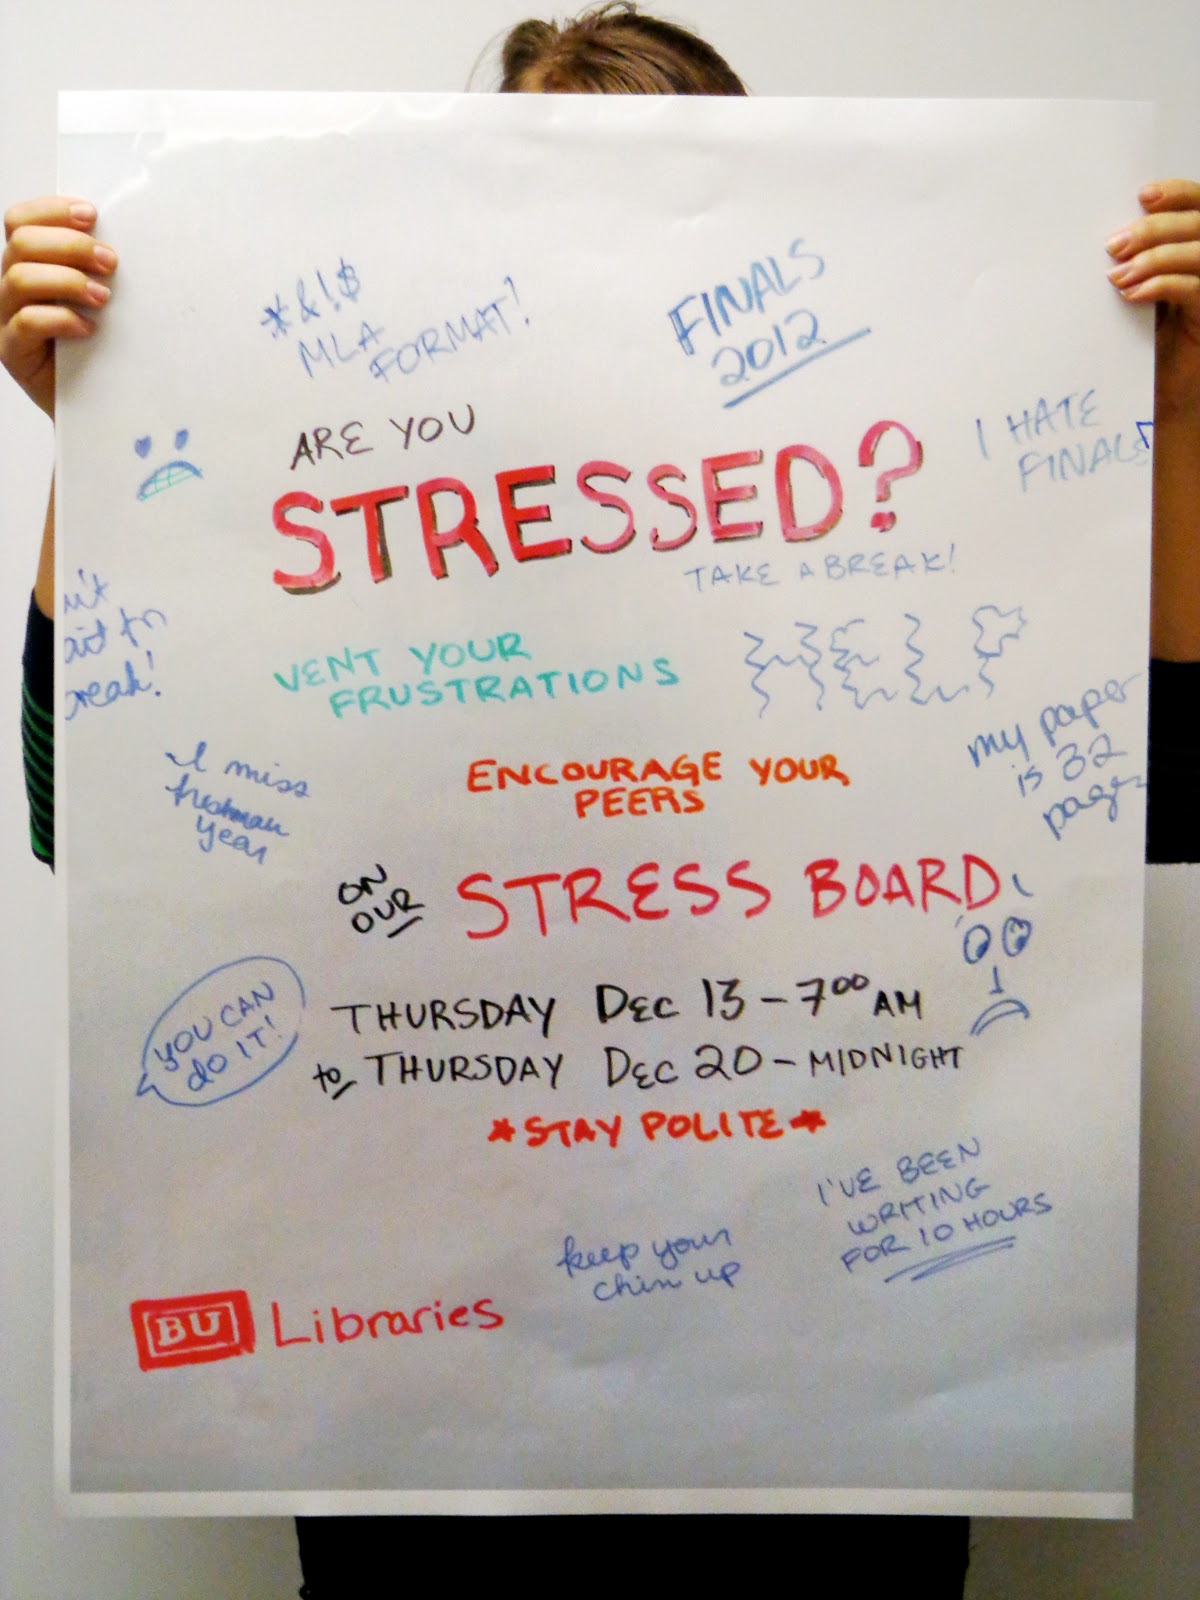 *&!$
MLA
FORMAT!
FINALS
2012
ARE YOU
STRESSED?
I HATE
FINALS
TAKE A BREAK!
VENT YOUR
FRUSTRATIONS
break!
ENCOURAGE YOUR
PEERS
my paper
is 32
pages
I miss
freshman
year
ON
OUR
STRESS BOARD
YOU CAN
do IT!
THURSDAY DEC 13 - 7⁰⁰ AM
to THURSDAY DEC 20 - MIDNIGHT
*STAY POLITE*
I'VE BEEN
WRITING
FOR 10 HOURS
keep your
chin up
BU Libraries